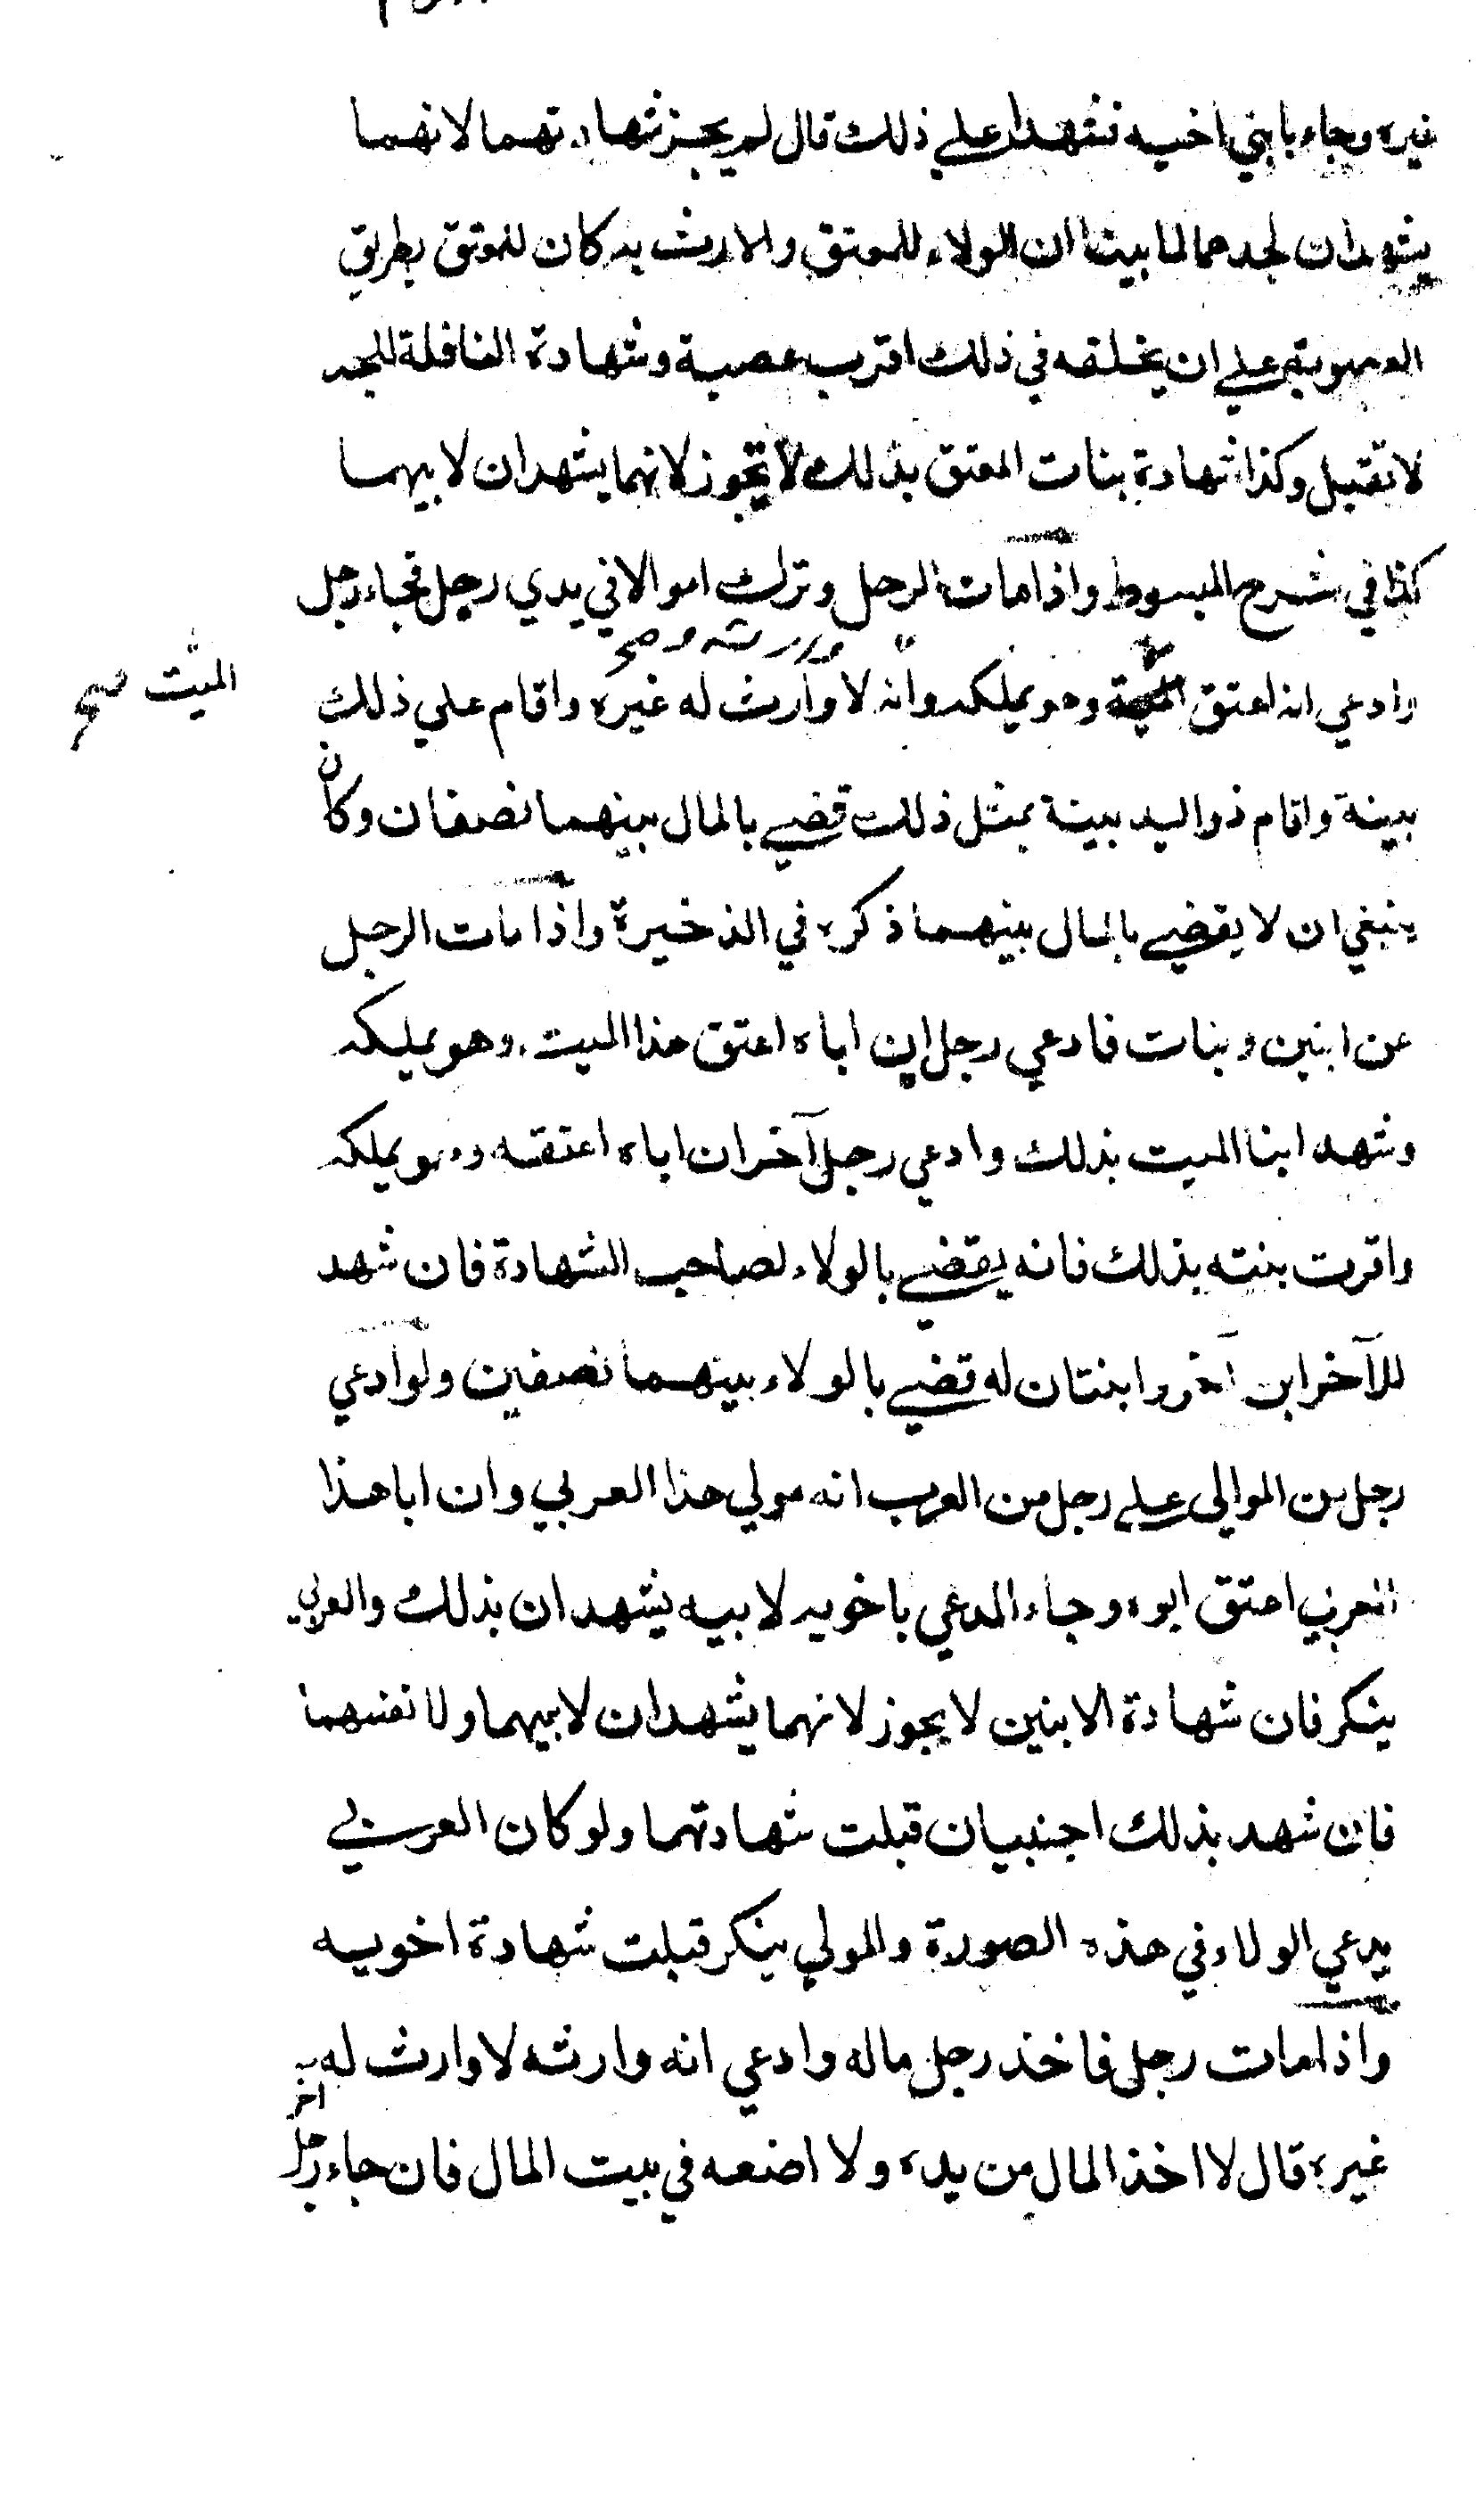 غيره وجاء بابني اخيه فشهدا علي ذلك قال لم يجز شهادتهما لانهما
يشهدان لجدهما لما بينا ان الولاء للمعتق والارث به كان للمعتق بطريق
العصوبة علي ان يخلفه في ذلك اقرب عصبة وشهادة النافلة للجد
لا تقبل وكذا شهادة بنات المعتق بذلك لا تجوز لانهما يشهدان لابيهما
كذا في شرح المبسوط واذا مات الرجل وترك اموالا في يدي رجل فجاء رجل
وادعي انه اعتق وهو يملكه وانه لا وارث له غيره واقام علي ذلك
وورثته وصح
الميت صح
بينة واقام ذو اليد بينة بمثل ذلك قضي بالمال بينهما نصفان وكان
ينبغي ان لا يقضي بالمال بينهما ذكره في الذخيرة واذا مات الرجل
عن ابنين وبنات فادعي رجل ان اباه اعتق هذا الميت وهو يملكه
وشهد ابنا الميت بذلك وادعي رجل آخر ان اباه اعتقه وهو يملكه
واقرت بنته بذلك فانه يقضي بالولاء لصاحب الشهادة فان شهد
للآخر ابن آخر وابنتان له قضي بالولاء بينهما نصفين ولو ادعي
رجل من الموالي علي رجل من العرب انه مولي هذا العربي وان ابا هذا
العربي اعتق ابوه وجاء المدعي باخويه لابيه يشهدان بذلك والعربي
ينكر فان شهادة الابنين لا يجوز لانهما يشهدان لابيهما ولانفسهما
فان شهد بذلك اجنبيان قبلت شهادتهما ولو كان العربي
يدعي الولاء في هذه الصورة والمولي ينكر قبلت شهادة اخويه
واذا مات رجل فاخذ رجل ماله وادعي انه وارثه لا وارث له
غيره قال لا اخذ المال من يده ولا اضعه في بيت المال فان جاء رجل آخر